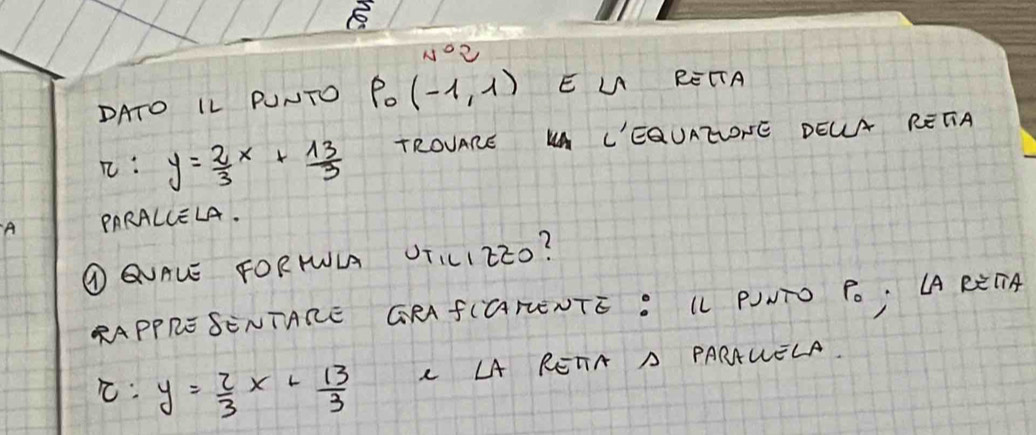 N°2
DATO IL PUNTO P₀ (-1,1) E LA RETTA
r: y = 2/3 x + 13/3 TROVARE L'EQUAZIONE DELLA RETTA
PARALLELA.
① QUALE FORMULA UTILIZZO?
RAPPRESENTARE GRAFICAMENTE: IL PUNTO P₀; LA RETTA
r: y = 2/3 x + 13/3 e LA RETTA s PARALLELA.